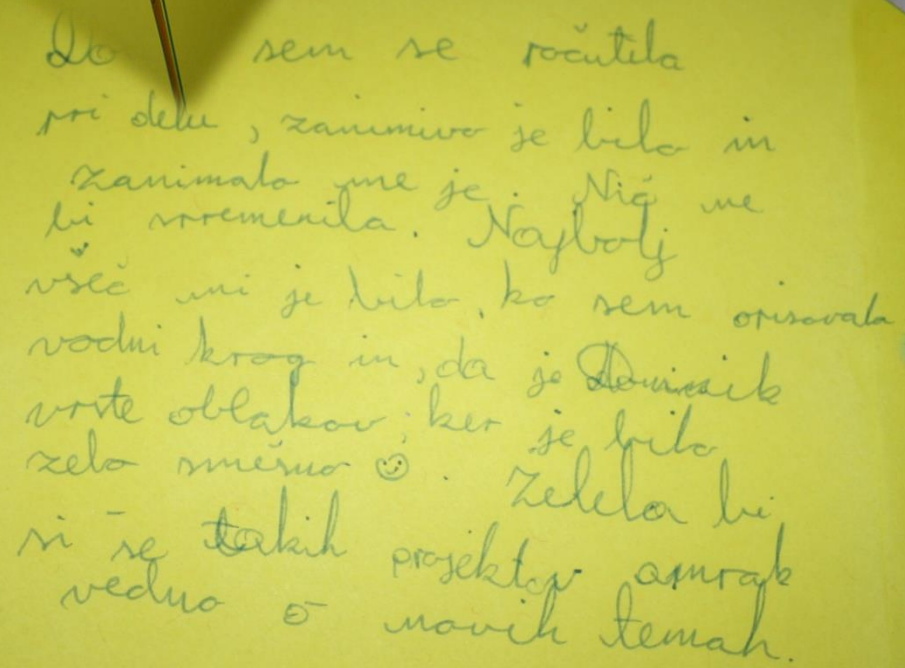 sem se počutila
pri delu, zanimivo je bilo in
zanimalo me je. Nič ne
bi spremenila. Najbolj
všeč mi je bilo, ko sem orisovala
vodni krog in, da je Dominik
vrste oblakov, ker je bilo
zelo smešno ☺. Želela bi
si še takih projektov ampak
vedno o novih temah.